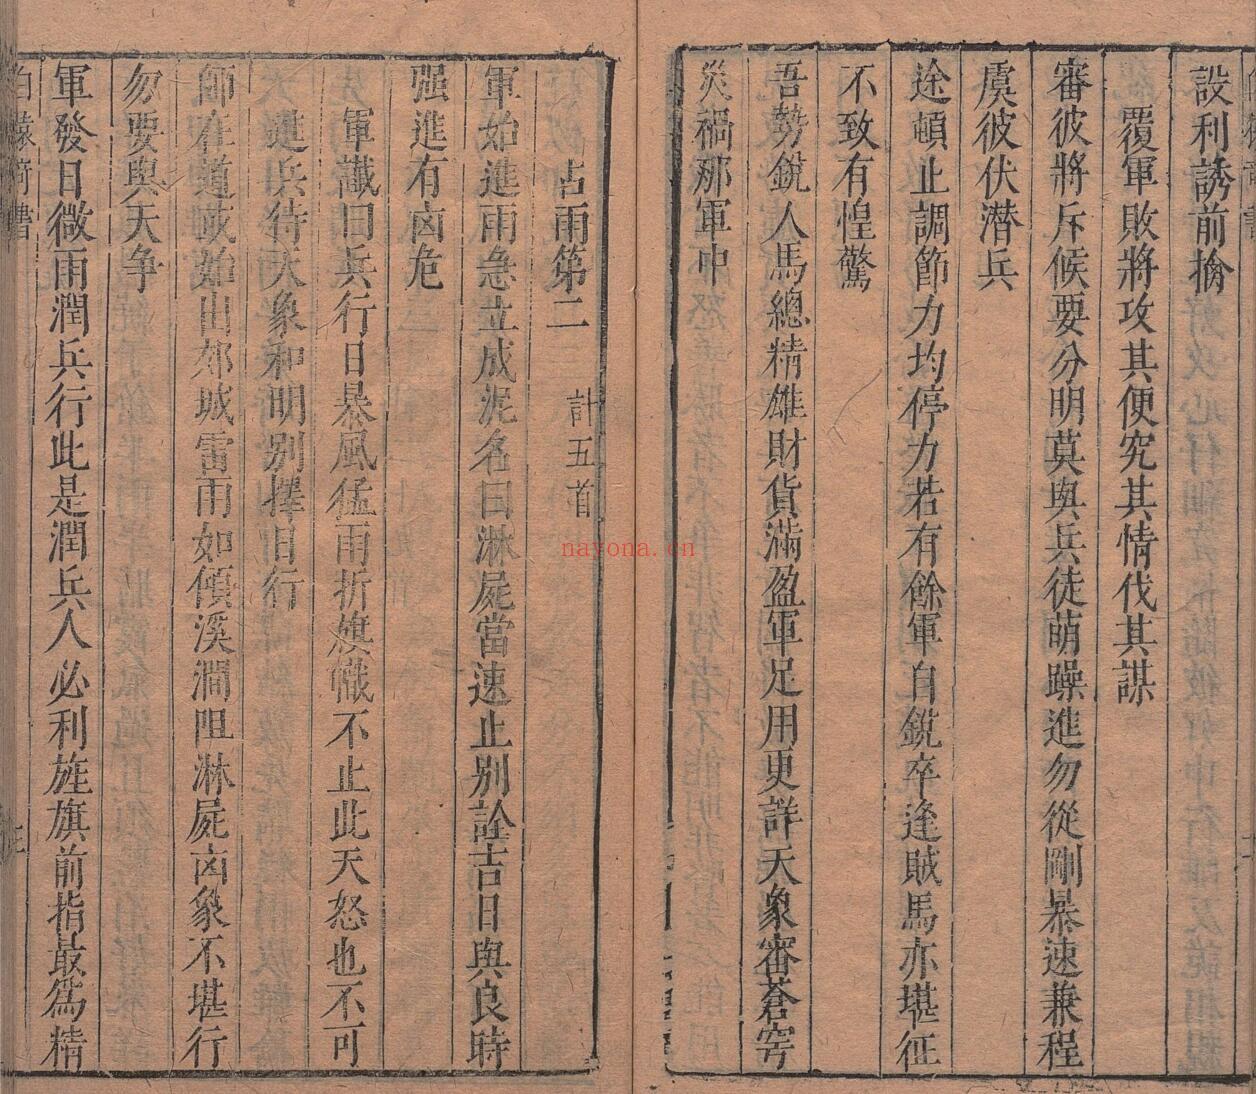 設利誘前擒
覆軍敗將攻其便究其情伐其謀
審彼將斥候要分明莫與兵徒萌躁進勿從剛暴速兼程
虞彼伏潜兵
途頓止調節力均停力若有餘軍自銳卒逢賊馬亦堪征
不致有惶驚
吾勢銳人馬總精雄財貨滿盈軍足用更詳天象審蒼穹
災禍那軍中
占雨第二 計五首
軍始進雨急立成泥名曰淋屍當速止别詮吉日與良時
强進有凶危
軍讖曰兵行日暴風猛雨折旗幟不止此天怒也不可
進兵待天象和明别擇日行
師在道或始出郊城雷雨如傾溪澗阻淋屍凶象不堪行
勿要與天争
軍發日微雨潤兵行此是潤兵人必利旌旗前指最爲精
nayona.cn